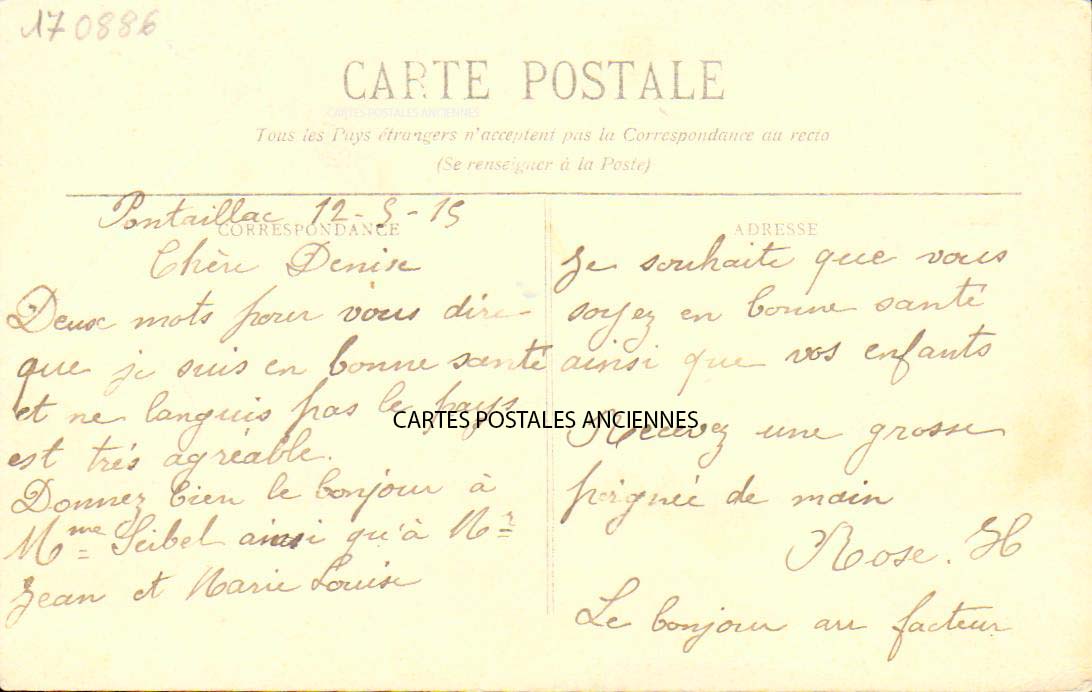 170886
CARTE POSTALE
CARTES POSTALES ANCIENNES
Tous les Pays étrangers n'acceptent pas la Correspondance au recto
(Se renseigner à la Poste)
Pontaillac 12-9-15
CORRESPONDANCE
Chère Denise
Deux mots pour vous dire
que je suis en bonne santé
et ne languis pas le pays
est trés agréable.
Donnez bien le bonjour à
Mme Seibel ainsi qu'à Mr
Jean et Marie Louise
ADRESSE
Je souhaite que vous
soyez en bonne santé
ainsi que vos enfants
CARTES POSTALES ANCIENNES
Recevez une grosse
poignée de main
Rose. H
Le bonjour au facteur